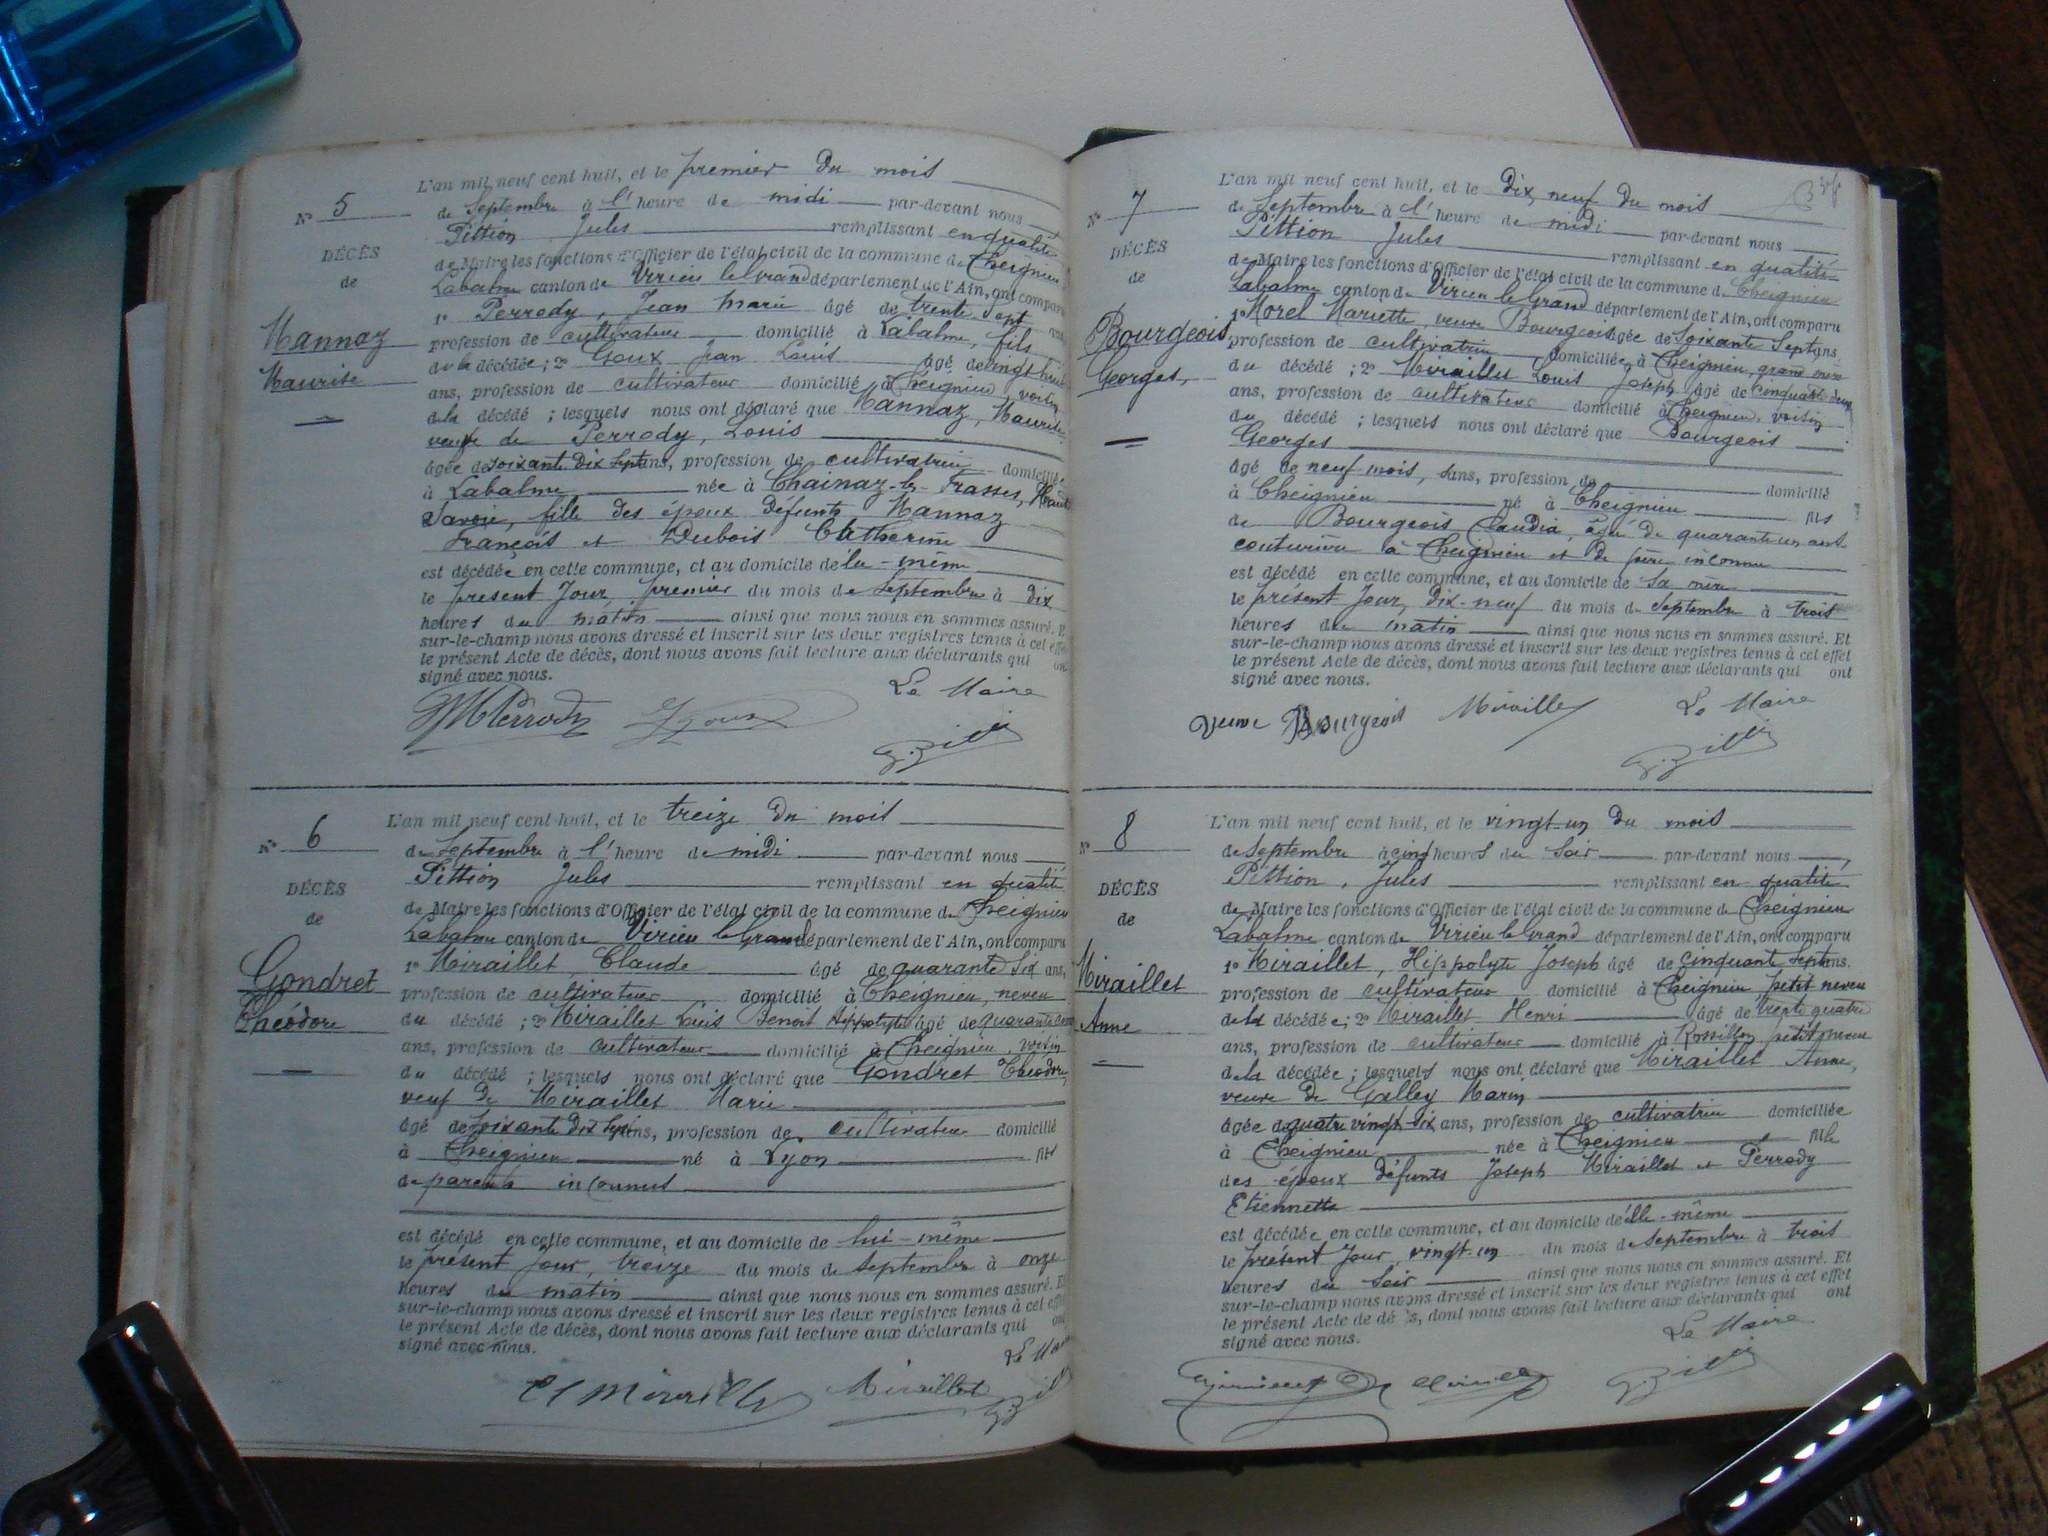 N° 5
DÉCÈS
de
Mannaz
Maurise
L'an mil neuf cent huit, et le premier du mois
de Septembre à l'heure de midi par-devant nous
Pittion Jules remplissant en qualité
de Maire les fonctions d'Officier de l'état civil de la commune de Cheignieu
Labalme canton de Virieu le Grand département de l'Ain, ont comparu
1° Perrody, Jean Marie âgé de trente-sept ans
profession de cultivateur domicilié à Labalme, fils
de la décédée; 2° Goux Jean Louis âgé de vingt huit
ans, profession de cultivateur domicilié à Cheignieu, voisin
de la décédé ; lesquels nous ont déclaré que Mannaz, Maurise
veuve de Perrody, Louis
âgée de soixante dix sept ans, profession de cultivatrice domiciliée
à Labalme née à Chainaz-les-Frasses, Haute
Savoie, fille des époux défunts Mannaz
François et Dubois Catherine
est décédée en cette commune, et au domicile de elle-même
le présent jour premier du mois de Septembre à dix
heures du matin ainsi que nous nous en sommes assuré. Et
sur-le-champ nous avons dressé et inscrit sur les deux registres tenus à cet effet
le présent Acte de décès, dont nous avons fait lecture aux déclarants qui ont
signé avec nous.
Le Maire
JMPerrody
N° 6
DÉCÈS
de
Gondret
Théodore
L'an mil neuf cent huit, et le treize du mois
de Septembre à l'heure de midi par-devant nous
Pittion Jules remplissant en qualité
de Maire les fonctions d'Officier de l'état civil de la commune de Cheignieu
Labalme canton de Virieu le Grand département de l'Ain, ont comparu
1° Miraillet, Claude âgé de quarante six ans,
profession de cultivateur domicilié à Cheignieu, neveu
du décédé ; 2° Miraillet Louis Benoit Hippolyte âgé de quarante
ans, profession de cultivateur domicilié à Cheignieu, voisin
du décédé ; lesquels nous ont déclaré que Gondret Théodore,
veuf de Miraillet Marie
âgé de soixante dix sept ans, profession de cultivateur domicilié
à Cheignieu né à Lyon fils
de parents inconnus
est décédé en cette commune, et au domicile de lui-même
le présent jour, treize du mois de Septembre à onze
heures du matin ainsi que nous nous en sommes assuré. Et
sur-le-champ nous avons dressé et inscrit sur les deux registres tenus à cet effet
le présent Acte de décès, dont nous avons fait lecture aux déclarants qui ont
signé avec nous.
Le Maire
Cl Miraillet Miraillet
N° 7
DÉCÈS
de
Bourgeois
Georges,
L'an mil neuf cent huit, et le Dix neuf du mois
de Septembre à l'heure de midi par-devant nous
Pittion Jules remplissant en qualité
de Maire les fonctions d'Officier de l'état civil de la commune de Cheignieu
Labalme canton de Virieu le Grand département de l'Ain, ont comparu
1° Morel Mariette, veuve Bourgeois âgée de soixante sept ans,
profession de cultivatrice domiciliée à Cheignieu, grand mère
du décédé ; 2° Miraillet Louis Joseph âgé de cinquante deux
ans, profession de cultivateur domicilié à Cheignieu, voisin
du décédé ; lesquels nous ont déclaré que Bourgeois
Georges
âgé de neuf mois, sans, profession de domicilié
à Cheignieu né à Cheignieu fils
de Bourgeois Claudia, âgée de quarante un ans
couturière à Cheignieu et de père inconnu
est décédé en cette commune, et au domicile de sa mère
le présent jour, dix-neuf du mois de Septembre à trois
heures du matin ainsi que nous nous en sommes assuré. Et
sur-le-champ nous avons dressé et inscrit sur les deux registres tenus à cet effet
le présent Acte de décès, dont nous avons fait lecture aux déclarants qui ont
signé avec nous.
Le Maire
Veuve Bourgeois Miraillet
N° 8
DÉCÈS
de
Miraillet
Anne
L'an mil neuf cent huit, et le vingt-un du mois
de Septembre à cinq heures du soir par-devant nous
Pittion, Jules remplissant en qualité
de Maire les fonctions d'Officier de l'état civil de la commune de Cheignieu
Labalme canton de Virieu le Grand département de l'Ain, ont comparu
1° Miraillet, Hippolyte Joseph âgé de cinquante sept ans.
profession de cultivateur domicilié à Cheignieu, petit neveu
de la décédée; 2° Miraillet Henri âgé de trente quatre
ans, profession de cultivateur domicilié à Rossillon, petit neveu
de la décédée ; lesquels nous ont déclaré que Miraillet Anne,
veuve de Galley Marin
âgée de quatre vingt dix ans, profession de cultivatrice domiciliée
à Cheignieu née à Cheignieu fille
des époux défunts Joseph Miraillet et Perrody
Etiennette
est décédée en cette commune, et au domicile de elle-même
le présent jour, vingt-un du mois de Septembre à trois
heures du soir ainsi que nous nous en sommes assuré. Et
sur-le-champ nous avons dressé et inscrit sur les deux registres tenus à cet effet
le présent Acte de décès, dont nous avons fait lecture aux déclarants qui ont
signé avec nous.
Le Maire